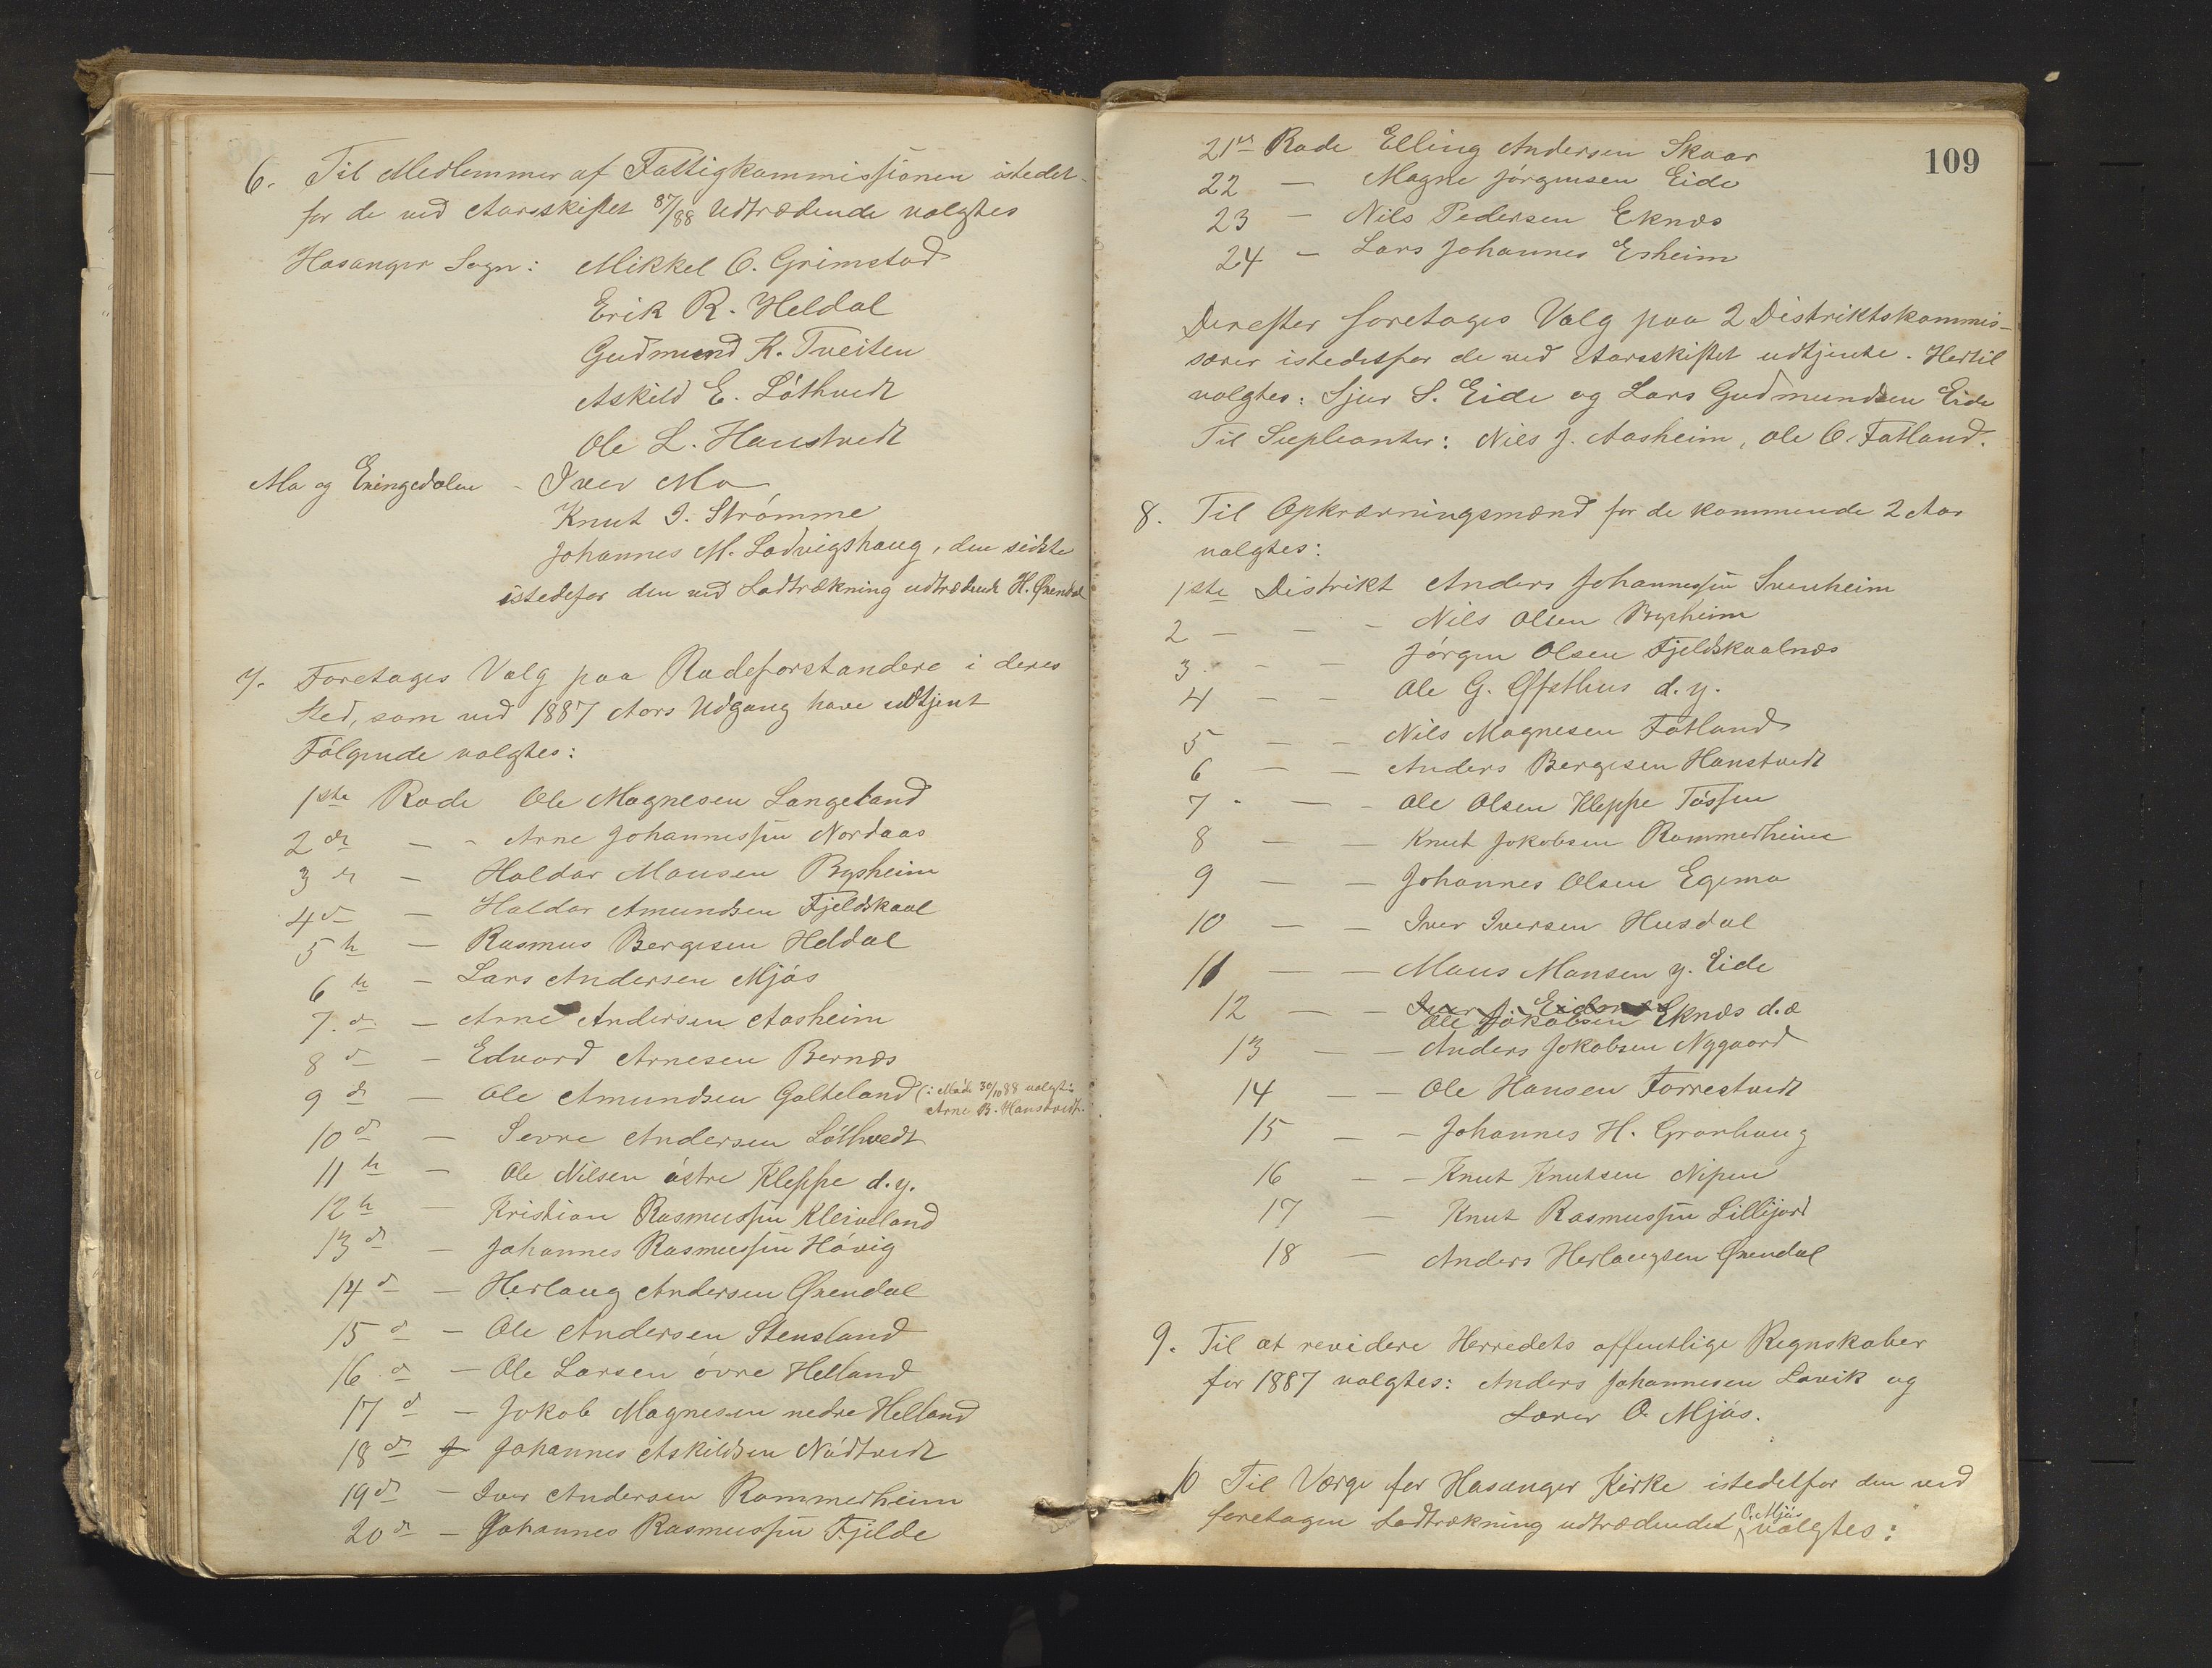 6. Til Medlemmer af Fattigkommissionen istedet-
for de ved Aarsskiftet 87/88 Udtrædende valgtes
Hosanger Sogn: Mikkel O. Grimstad
Erik R. Heldal
Gudmund K. Tveiten
Askild E. Lóthvedt
Ole L. Hanstvedt
Mo og Exingedalen - Iver Mo
Knut I. Strómme
Johannes M. Lodvigshaug, den sidste
istedefor den ved Lodtrækning udtrædende H. Øxendal
7. Foretages Valg paa Rodeforstandere i deres
Sted, som ved 1887 Aars Udgang have udtjent
Fólgende valgtes:
1ste Rode Ole Magnesen Langeland
2den — - Arne Johannessen Nordaas
3de — Haldor Monsen Bysheim
4de — Haldor Amundsen Fjeldskaal
5te — Rasmus Bergesen Heldal
6te — Lars Andersen Mjós
7.de — Arne Andersen Aasheim
8de — Edvard Arnesen Bernæs
9de — Ole Amundsen Galteland (: Móde 30/10 88 valgt:
Arne B. Hanstvedt.
10de — Sevre Andersen Lóthvedt
11te — Ole Nilsen óstre Kleppe d.y.
12te — Kristian Rasmussen Kleiveland
13de — Johannes Rasmussen Hóvig
14de — Herlaug Andersen Øxendal
15de — Ole Andersen Stensland
16.de — Ole Larsen óvre Helland
17de — Jokob Magnesen nedre Helland
18de J Johannes Askildsen Nódtvedt
19de — Iver Andersen Rommerheim
20de — Johannes Rasmussen Fjilde
109
21de Rode Elling Andersen Skaar
22 — Magne Jórgensen Eide
23 — Nils Pedersen Eknæs
24 — Lars Johannes Esheim
Derefter foretages Valg paa 2 Distriktskommis-
særer istedetfor de ved Aarsskiftet udtjente. Hertil
valgtes: Sjur S. Eide og Lars Gudmundsen Eide
Til Supleanter: Nils J. Aasheim, Ole O. Fatland.
8. Til Opkrævningsmænd for de kommende 2 Aar
valgtes:
1ste Distrikt Anders Johannessen Svenheim
2 — - - Nils Olsen Bysheim
3. - — Jórgen Olsen Fjeldskaalnæs
4 — — Ole G. Øfsthus d.y.
5 — — Nils Magnesen Fatland
6 — — Anders Bergesen Hanstvedt
7 - — - Ole Olsen Kleppe Tóssen
8 — — Knut Jokobsen Rommerheim
9 — — Johannes Olsen Egemo
10 — — Iver Iversen Husdal
11 — — Mons Monsen y. Eide
12 — — Iver J. Eidsnæs
Ole Jokobsen Eknæs d.æ
13 — — Anders Jokobsen Nygaard
14 — — Ole Hansen Forrestvedt
15 — — Johannes H. Grovhaug
16 — — Knut Knutsen Nipen
17 — Knut Rasmussen Lillejord
18 — Anders Herlaugsen Øxendal
9. Til at revidere Herredets offentlige Regnskaber
for 1887 valgtes: Anders Johannesen Lavik og
Lærer O. Mjós.
10 Til Værge for Hosanger Kirke istedetfor den ved
foretagen Lodtrækning udtrædendet O. Mjós valgtes: